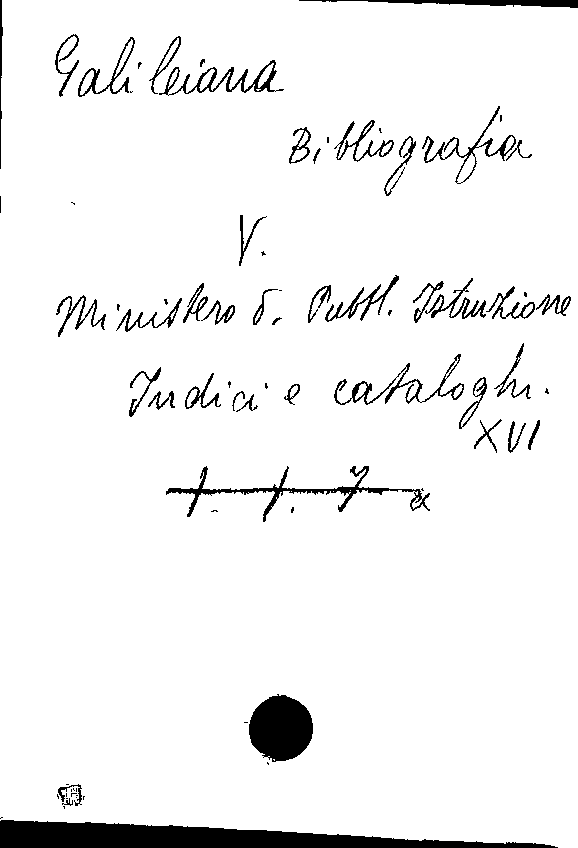 Galileiana
Bibliografia
V.
Ministero d. Pubbl. Istruzione
Indici e cataloghi.
XVI
1. 1. 7 a